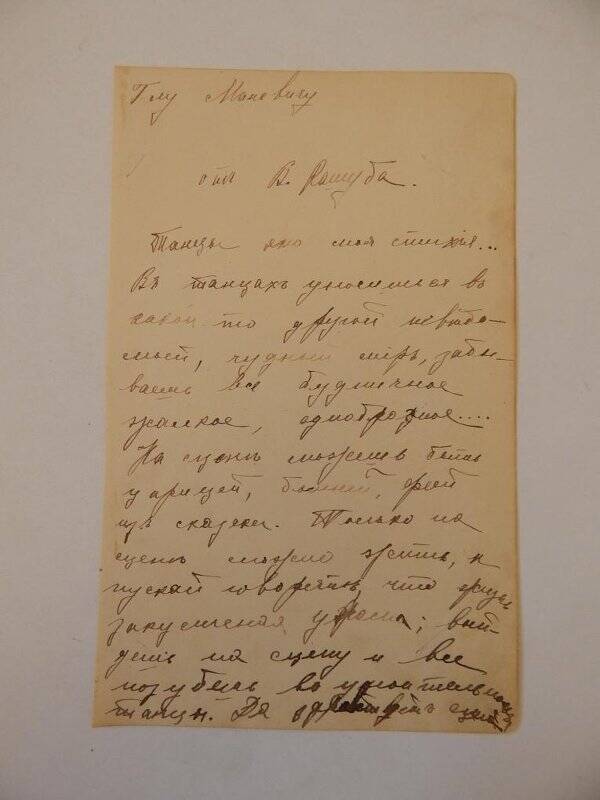 Г-ну Маневичу
отъ В. Кашуба.
Танцы это моя стихія...
Въ танцахъ уносишься въ
какой то другой невѣдо-
мый, чудный міръ, забы-
ваешь все будничное
жалкое, однобразное....
На сценѣ можешь быть
царицей, богиней, феей
изъ сказки. Только на
сценѣ можно жить, и
пускай говорятъ, что жизнь
закулисная ужасна; вый-
дешь на сцену и все
позубешь въ упоительномъ
танцы. Да здравствуетъ сцена